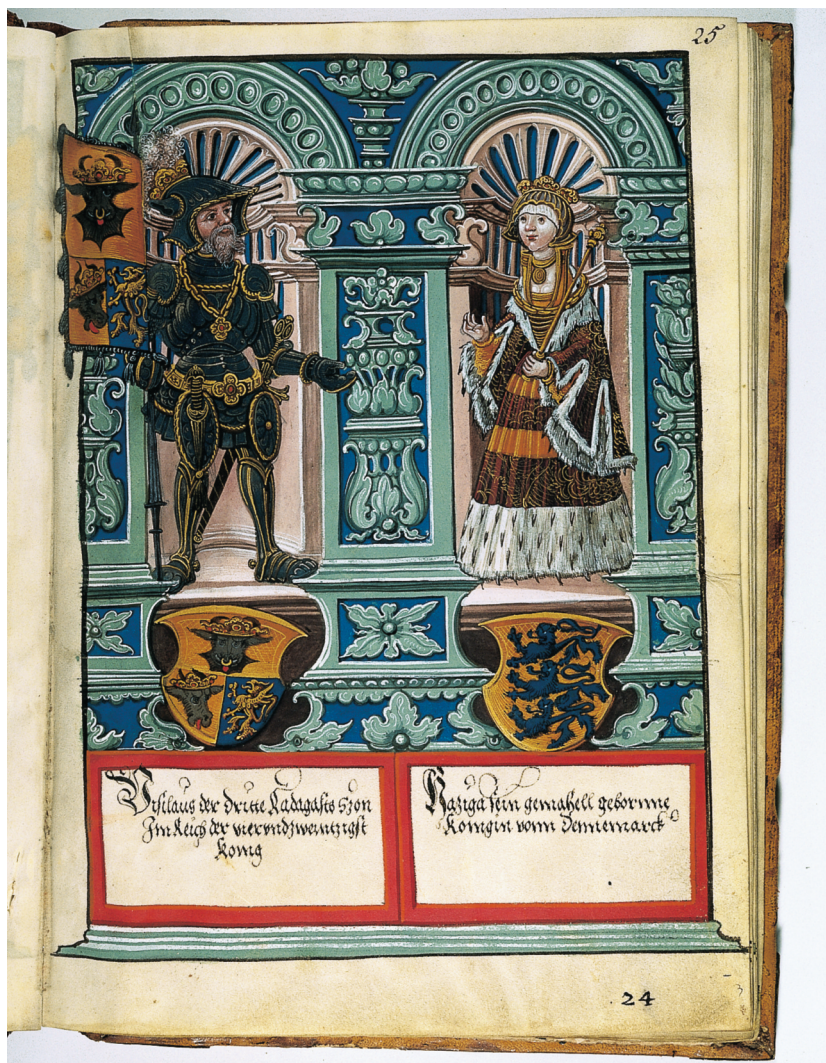 25
Visilaus der dritte Radagasts Szon
Im Reich der vierundzwentzigst
Konig
Naziga sein gemahell gebornne
Konigin vonn Dennemarck
24